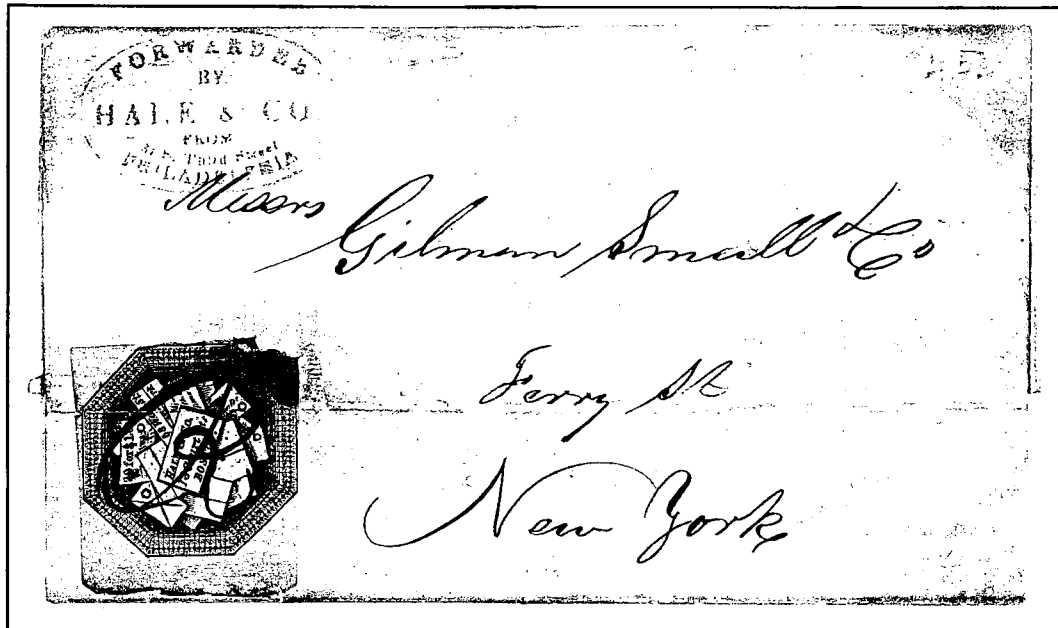 FORWARDED
BY
HALE & CO
FROM
Third Street
PHILADELPHIA
Messrs
Gilman Small & Co
Ferry St
New York
HALE & CO